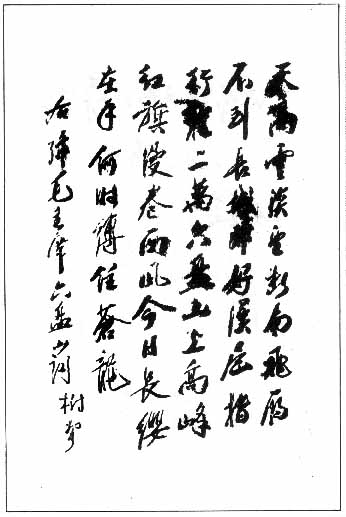 天高雲淡望断南飛雁
不到長城非好漢屈指
行程二萬六盘山上高峰
红旗漫卷西风今日長纓
在手何时缚住蒼龍
右录毛主席六盘山词 树